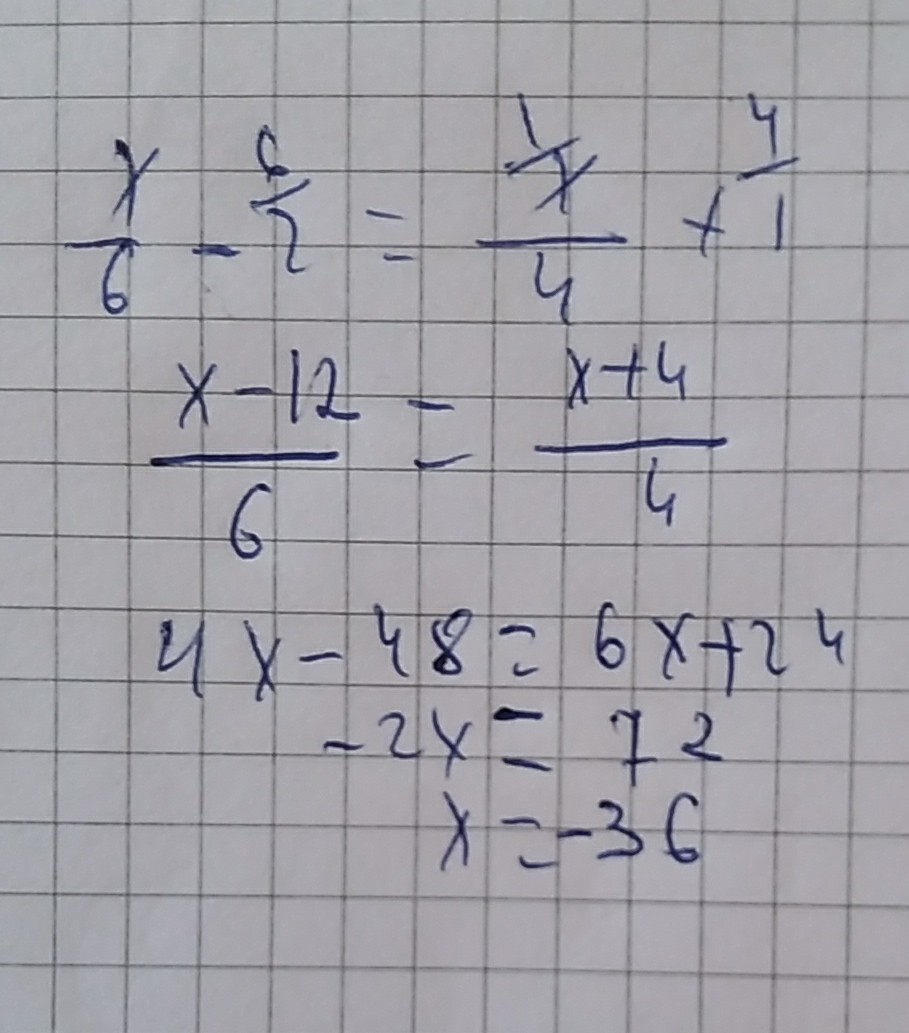 x/6 - 6/2 = x/4 + 4/1
x-12/6 = x+4/4
4x-48=6x+24
-2x=72
x=-36